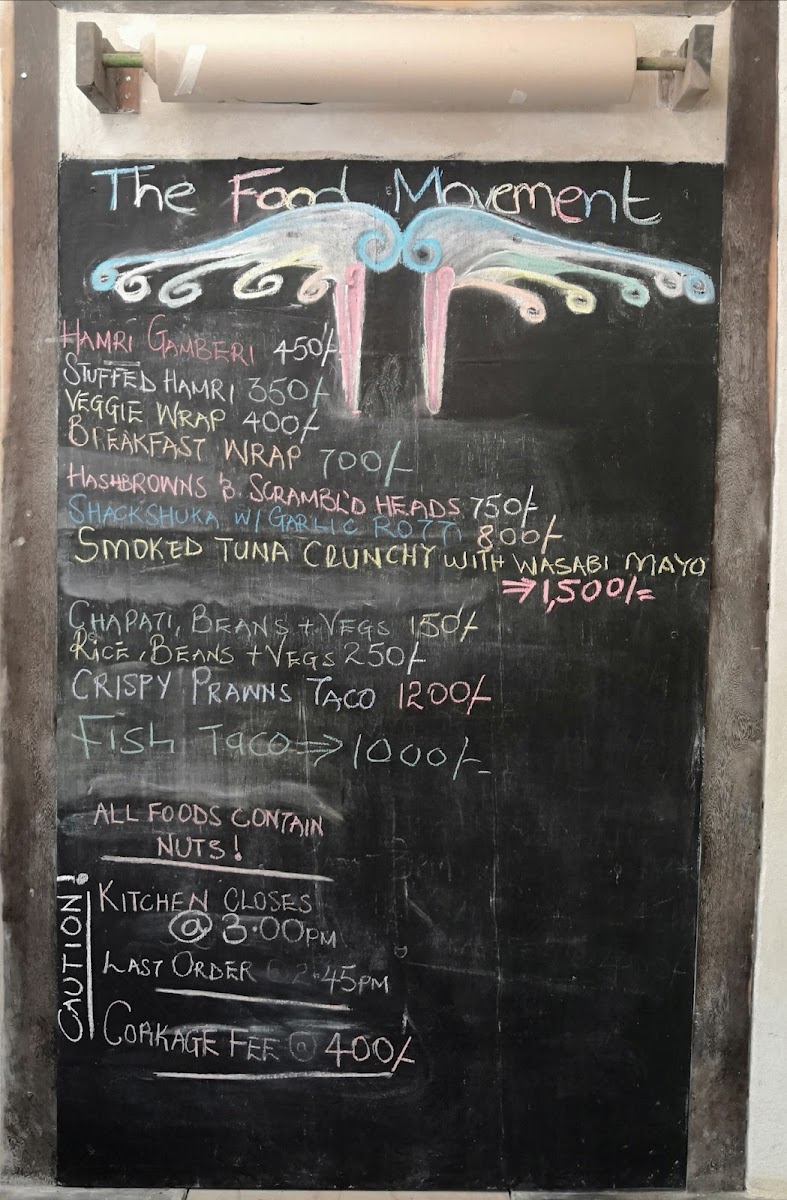 The Food Movement
HAMRI GAMBERI 450/-
STUFFED HAMRI 350/-
VEGGIE WRAP 400/-
BREAKFAST WRAP 700/-
HASHBROWNS & SCRAMBL'D HEADS 750/-
SHACKSHUKA W/ GARLIC ROTTI 800/-
SMOKED TUNA CRUNCHY WITH WASABI MAYO
⇒1,500/=
CHAPATI, BEANS + VEGS 150/-
RICE, BEANS + VEGS 250/-
CRISPY PRAWNS TACO 1200/-
FISH TACO ⇒ 1000/-
ALL FOODS CONTAIN
NUTS!
CAUTION!
KITCHEN CLOSES
@ 3.00PM
LAST ORDER @ 2.45PM
CORKAGE FEE @ 400/-